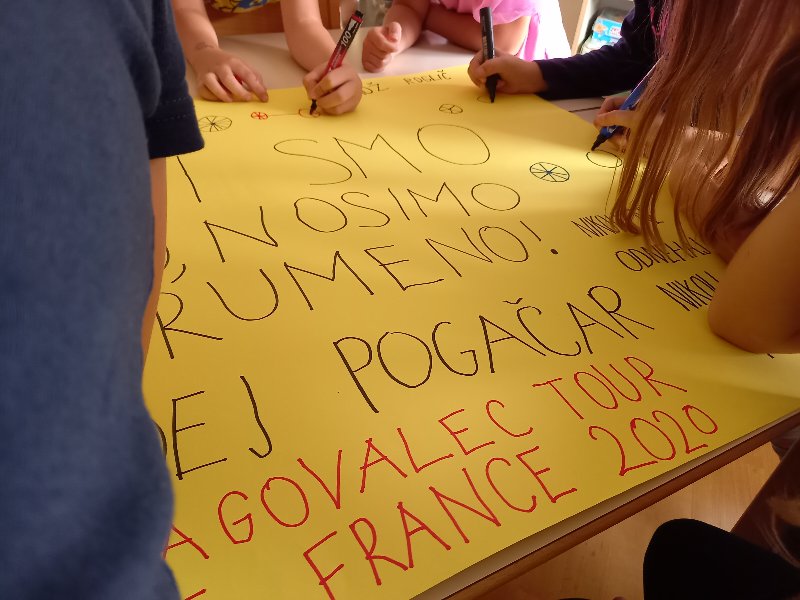 OŽ ROGLIČ
I SMO
NOSIMO
RUMENO!
ODNEHAJ
NIKOLI
DEJ POGAČAR
AGOVALEC TOUR
E FRANCE 2020